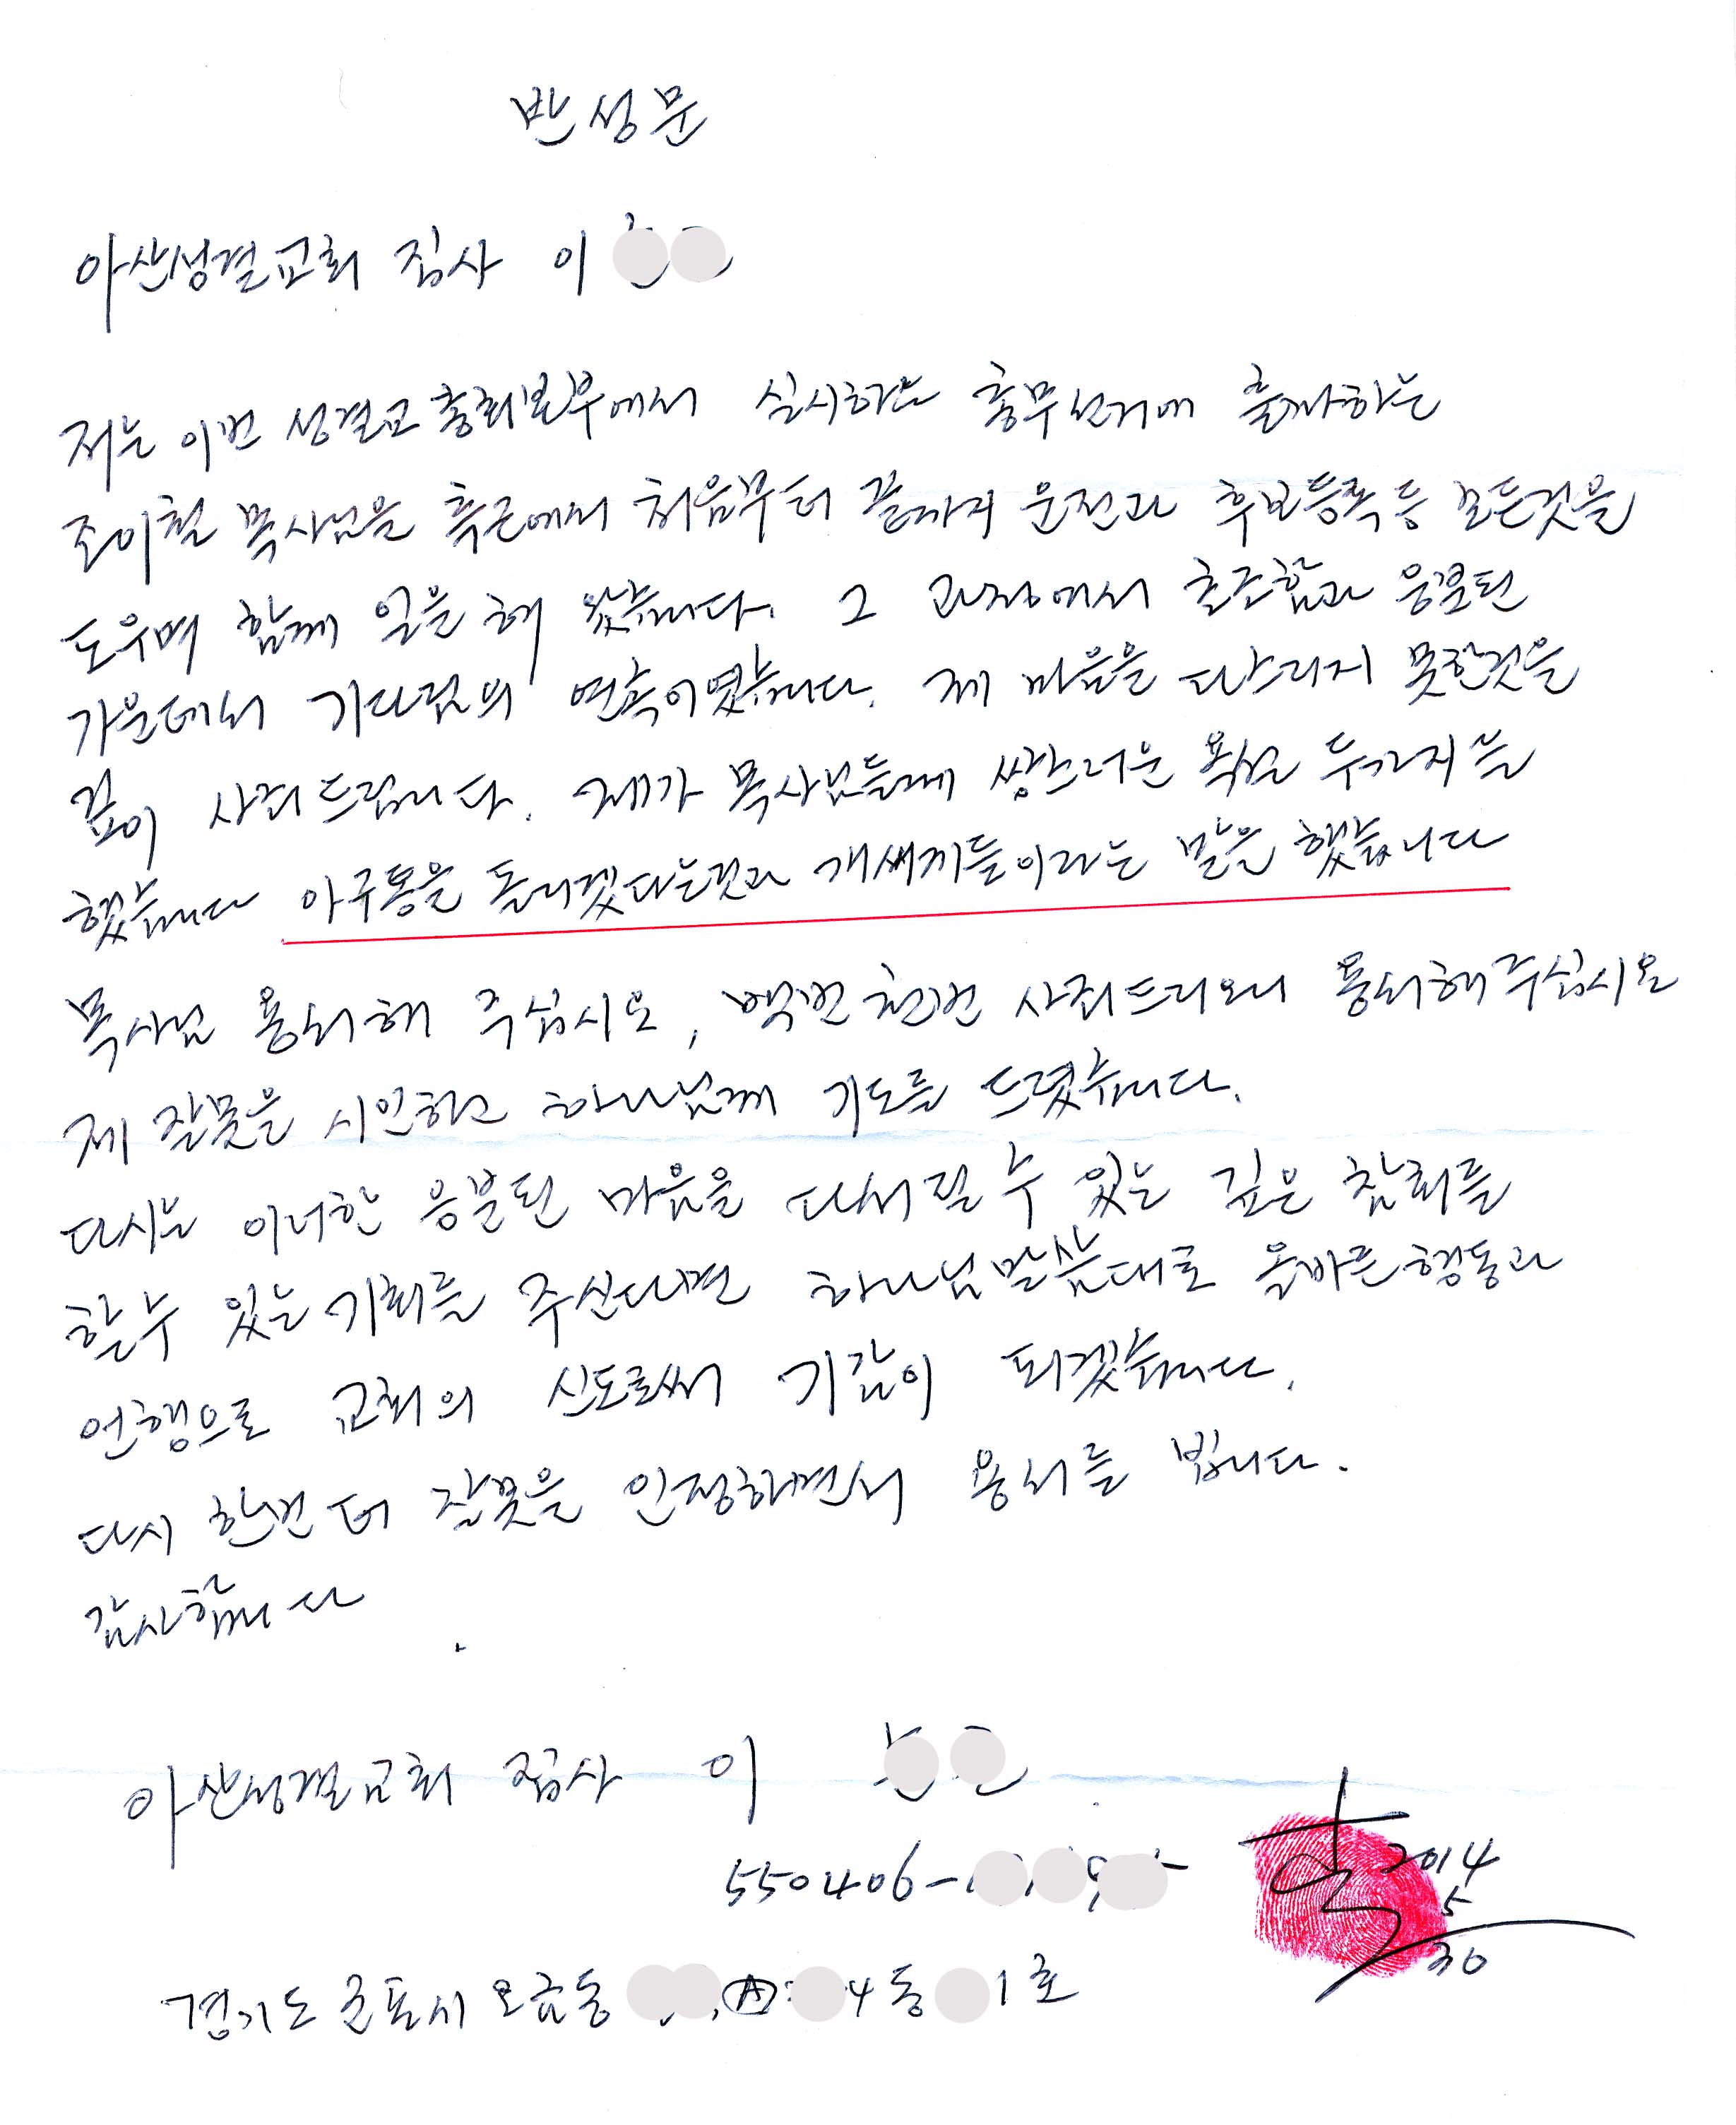 반성문
아산성결교회 집사 이
저는 이번 성결교 총회본부에서 실시하는 총무선거에 출마하는
조이철 목사님을 측근에서 처음부터 끝까지 운전과 후보등록 등 모든것을
도우며 함께 일을 해 왔습니다. 그 과정에서 초조함과 응결된
가운데서 기다림의 연속이였습니다. 제 마음을 다스리지 못한것을
깊이 사죄드립니다. 제가 목사님들께 쌍스러운 욕설 두가지를
했습니다 아구통을 돌리겠다는것과 개쌔끼들이라는 말을 했습니다
목사님 용서해 주십시오, 백번천번 사죄드리오니 용서해주십시오
제 잘못을 시인하고 하나님께 기도를 드렸습니다.
다시는 이러한 응분된 마음을 다서릴 수 있는 깊은 참회를
할수 있는 기회를 주신다면 하나님말씀대로 올바른행동과
언행으로 교회의 신도로써 기감이 되겠습니다.
다시 한번 더 잘못을 인정하면서 용서를 빕니다.
감사합니다.
아산성결교회 집사 이
550406-
2014
5
30
경기도 군포시 오금동 A 4동 1호